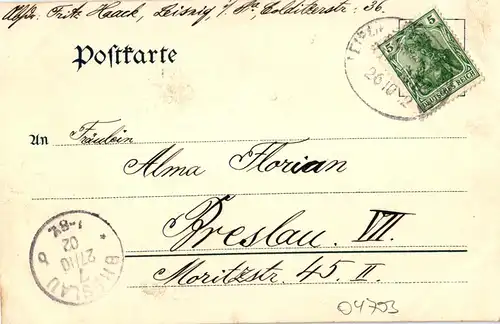 Absdr. Fritz Haack, Leisnig i/ Sa. Colditzerstr. 36.
Postkarte
5 5
DEUTSCHES REICH
26 10 02
An Fräulein
Alma Florian
Breslau. VII.
Moritzstr. 45. II.
BRESLAU
7
27/10
02
1-8V.
04703